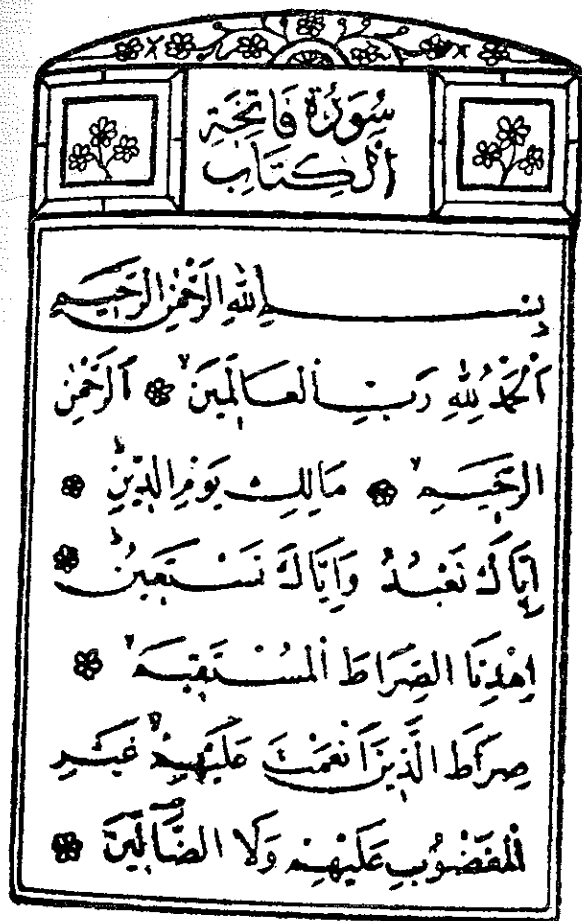 سُورَةُ فَاتِحَةِ
الْكِتَابِ
بِسْمِ اللهِ الرَّحْمٰنِ الرَّحِيمِ
اَلْحَمْدُ لِلّٰهِ رَبِّ الْعَالَمِينَۙ ❀ اَلرَّحْمٰنِ
الرَّحِيمِۙ ❀ مَالِكِ يَوْمِ الدِّينِؕ ❀
اِيَّاكَ نَعْبُدُ وَاِيَّاكَ نَسْتَعِينُؕ ❀
اِهْدِنَا الصِّرَاطَ الْمُسْتَقِيمَۙ ❀
صِرَاطَ الَّذِينَ اَنْعَمْتَ عَلَيْهِمْۙ غَيْرِ
الْمَغْضُوبِ عَلَيْهِمْ وَلَا الضَّالِّينَ ❀